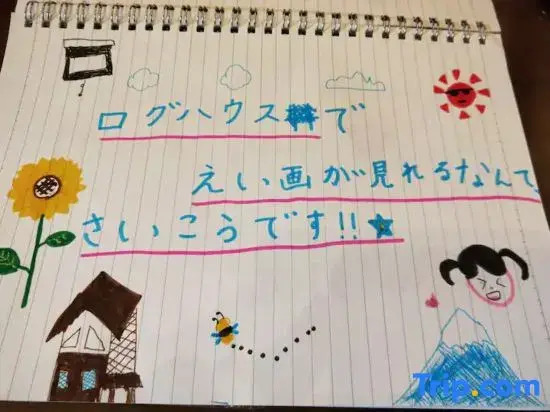 ログハウスで
えい画が見れるなんて、
さいこうです!!
Trip.com